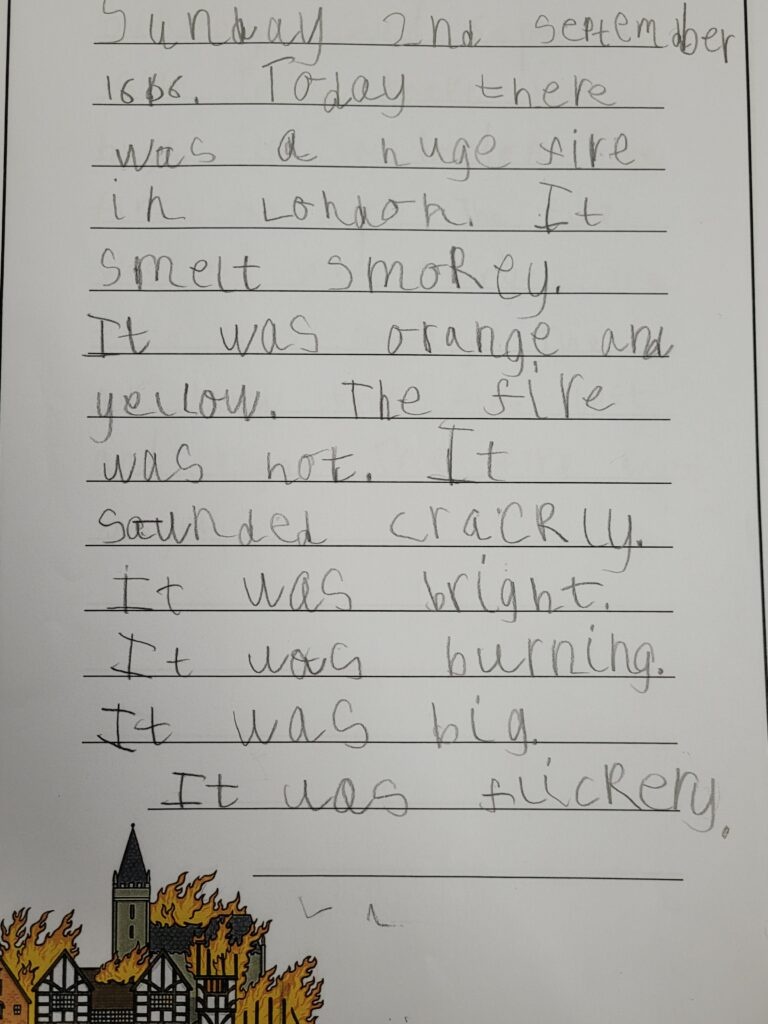 Sunday 2nd september
1666. Today there
was a huge fire
in London. It
smelt smokey.
It was orange and
yellow. The fire
was hot. It
sounded crackly.
It was bright.
It was burning.
It was big.
It was flickery.